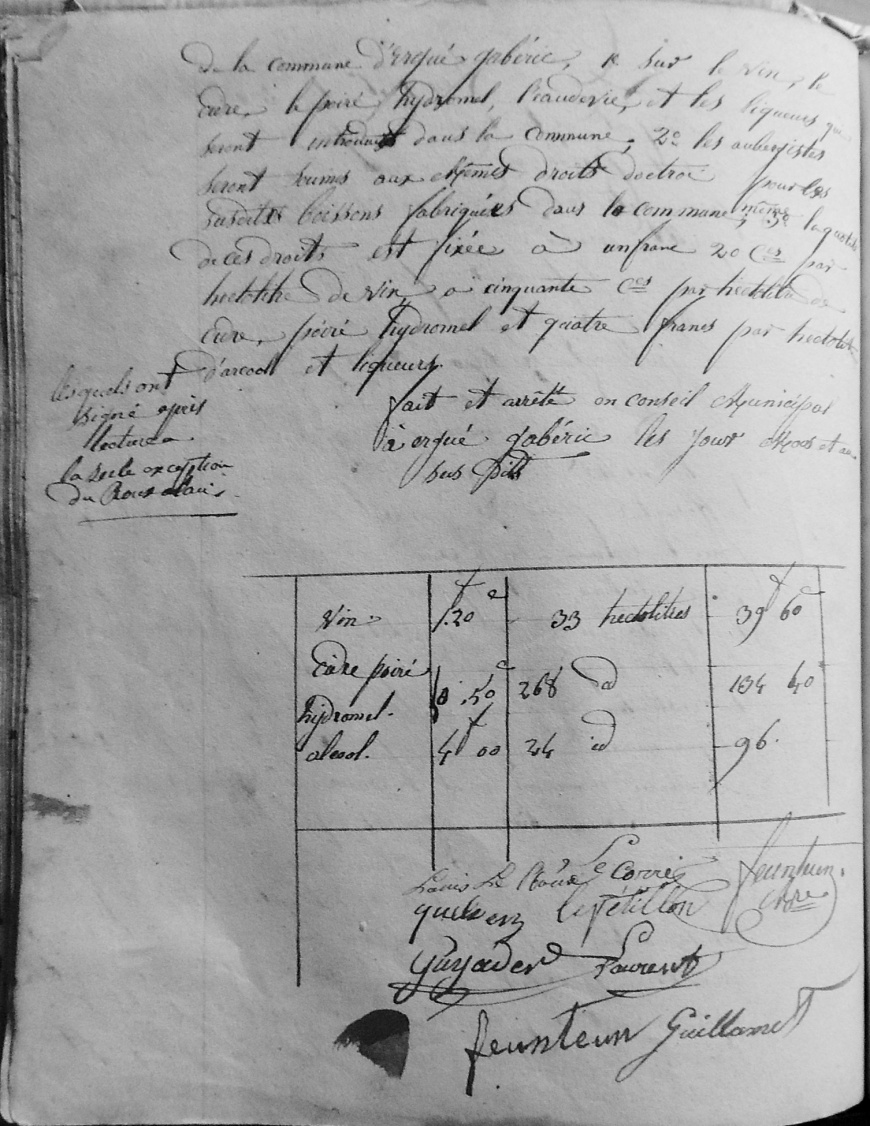 de la commune d'ergué gabéric, 1º sur le vin, le
cidre, le poiré, hydromel, l'eaudevie, et les liqueurs qui
seront introduits dans la commune, 2º les aubergistes
seront soumis aux mêmes droits d'octroi pour les
susdites boissons fabriquées dans la commune même, 3º la quotité
de ces droits est fixée à un franc 20 Ces par
hectolitre de vin, a cinquante Ces par hectolitre de
cidre, poiré hydromel et quatre francs par hectolitre
d'alcool et liqueurs.
fait et arrêté en conseil Municipal
à ergué gabéric les jour Mois et an
sus dits
lesquels ont
signé après
lecture
la seule exception
du
vin. 1f.20c 33 hectolitres 39f 60c
Cidre poiré
hydromel. 0.50c 268 id 134 40
alcool. 4f 00 24 id 96.
Louis Le Roux Le Corre feunteun
quelven le pétillon Mre
Guyader Laurent
feunteun Guillamet